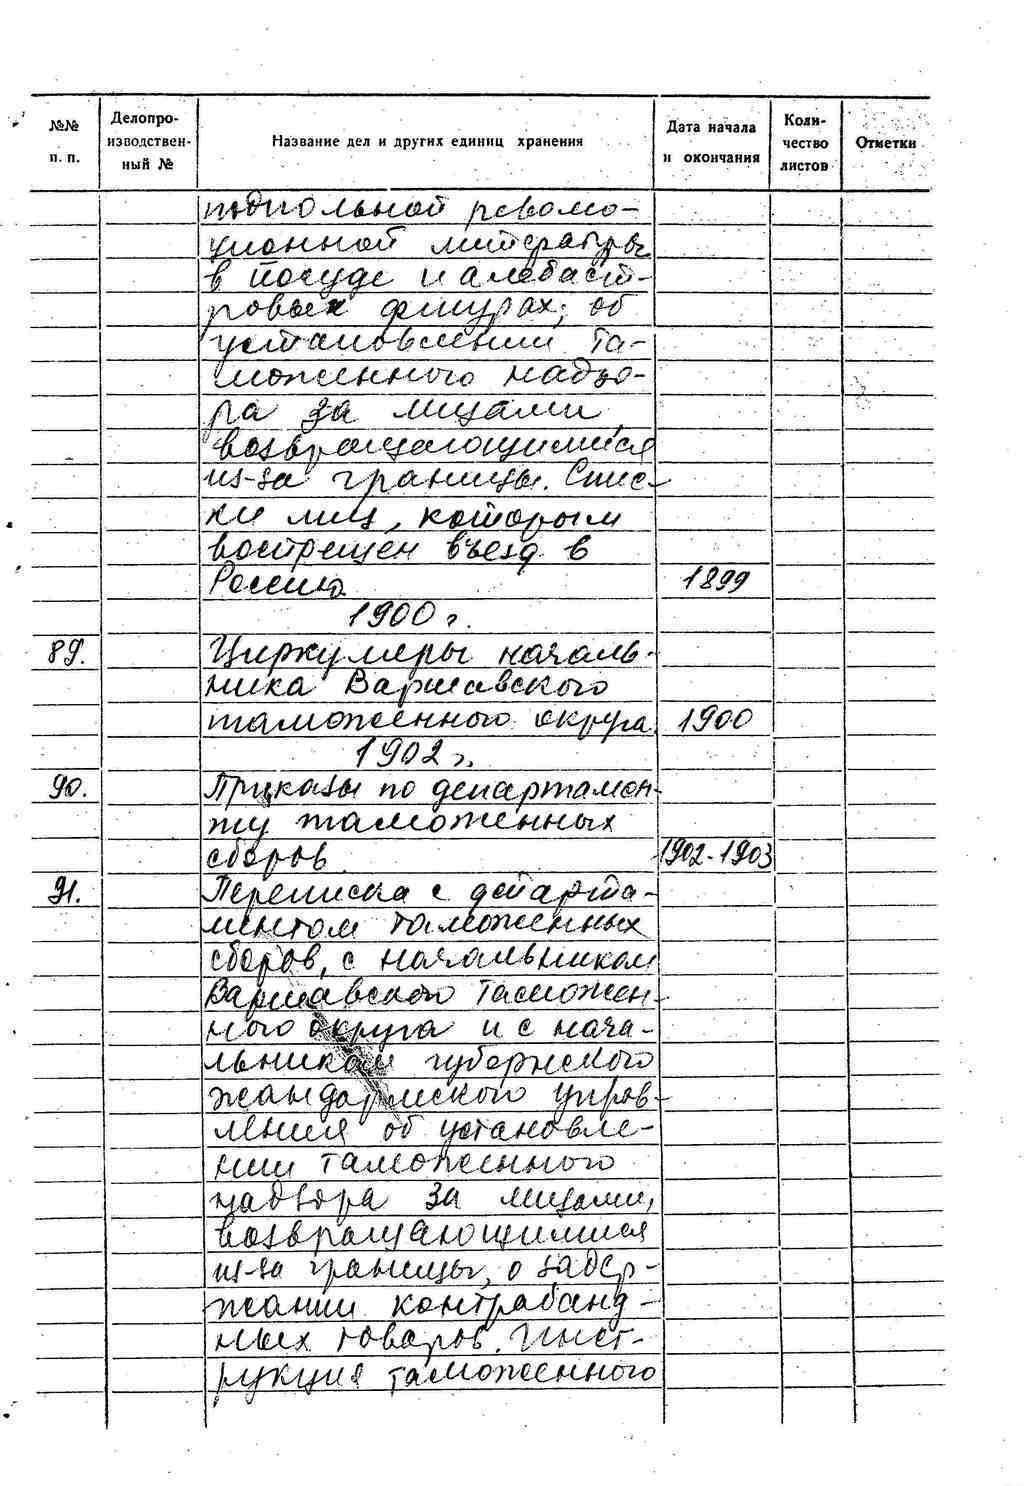 №№ п. п.
Делопро-
изводствен-
ный №
Название дел и других единиц хранения
Дата начала
и окончания
Коли-
чество
листов
Отметки
подпольной револю-
ционной литературы
в посуде и алебаст-
ровых фигурах; об
установлении та-
моженного надзо-
ра за лицами,
возвращающимися
из-за границы. Спис-
ки лиц, которым
воспрещен въезд в
Россию 1899
1900 г.
89. Циркуляры началь-
ника Варшавского
таможенного округа. 1900
1902 г.
90. Приказы по департамен-
ту таможенных
сборов 1902-1903
91. Переписка с департа-
ментом таможенных
сборов, с начальником
Варшавского таможен-
ного округа и с нача-
льником губернского
жандармского управ-
ления об установле-
нии таможенного
надзора за лицами,
возвращающимися
из-за границы, о задер-
жании контрабанд-
ных товаров. Инст-
рукция таможенного